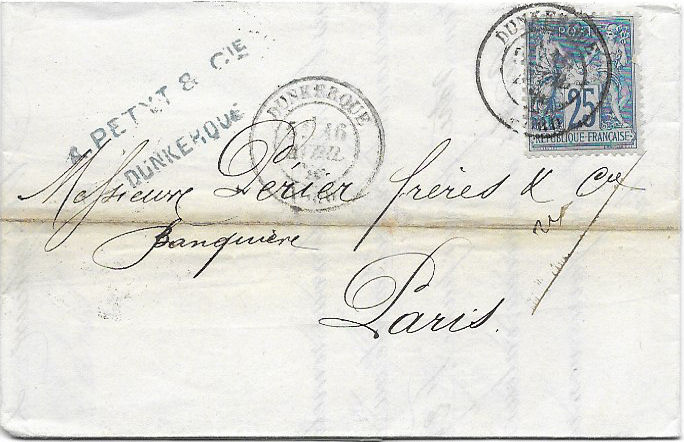 A. PETYT & CIE
DUNKERQUE
DUNKERQUE
16
AVRIL
DUNKERQUE
POSTE
25
REPUBLIQUE FRANÇAISE
Messieurs Périer frères & Cie
Banquiers
Paris.